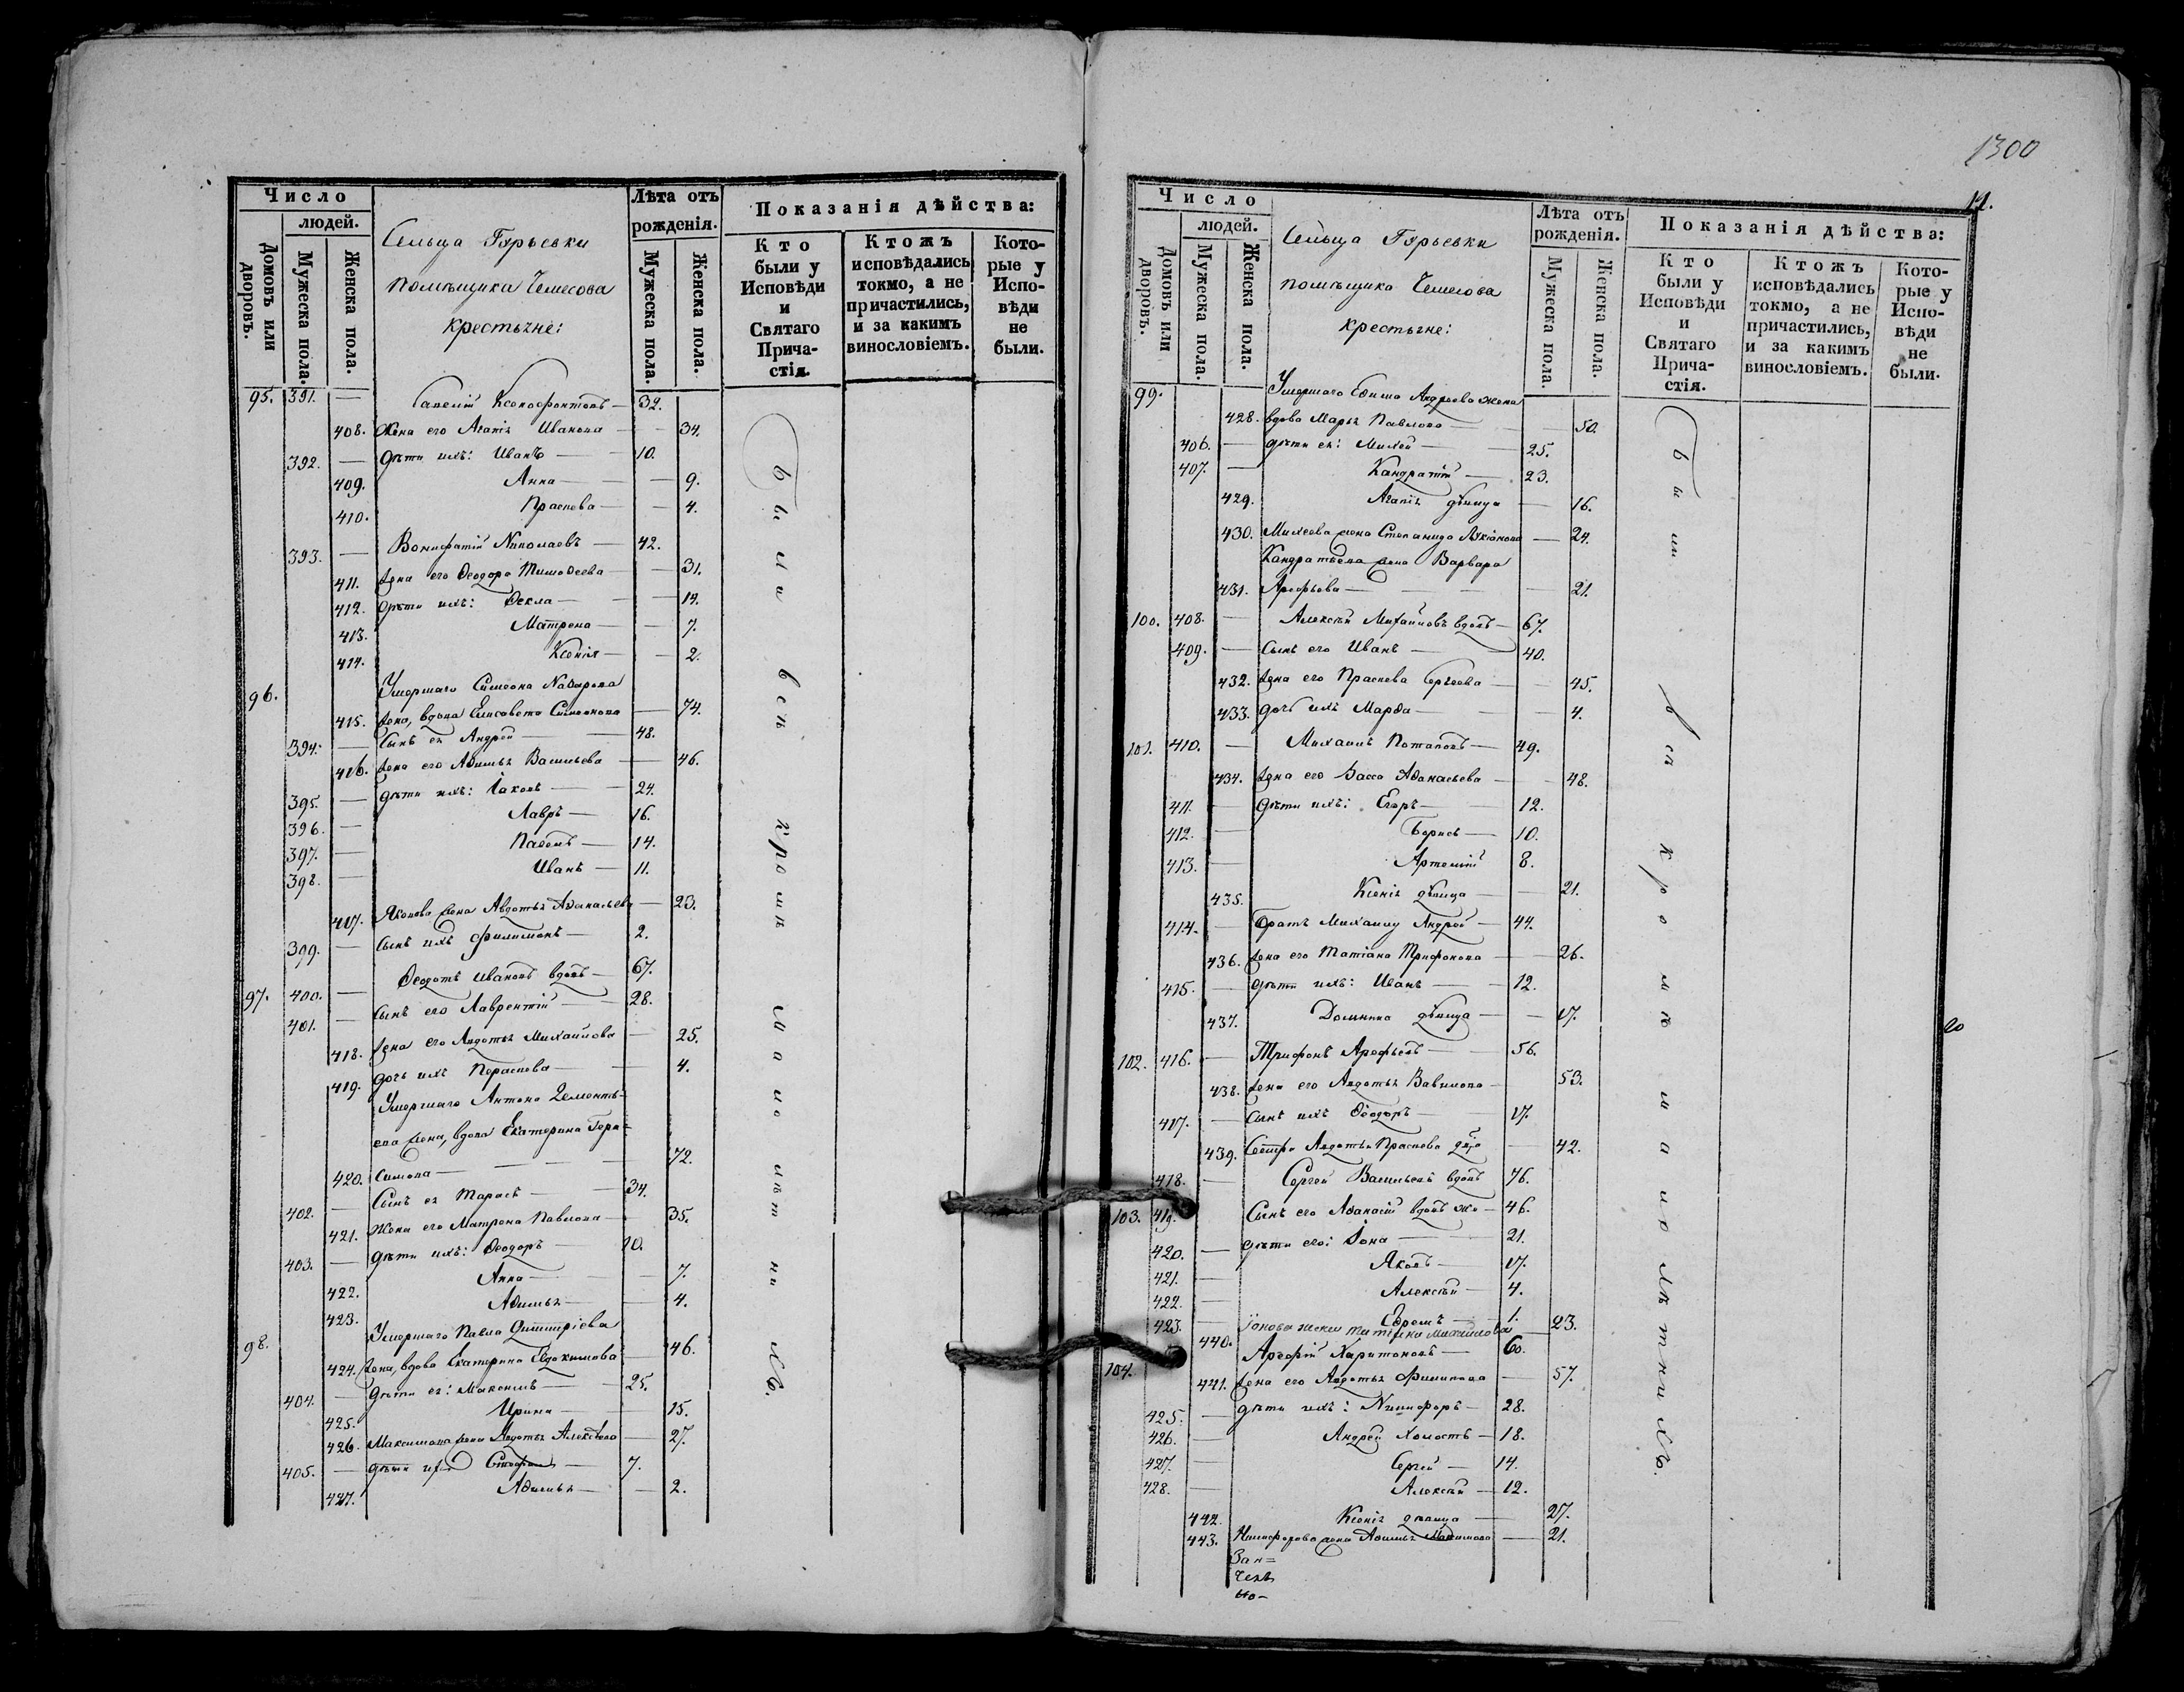 Число
людей.
Домовъ или дворовъ.
Мужеска пола.
Женска пола.
Сельца Гурьевки
помѣщика Чемесова
крестьяне:
Лѣта отъ рожденія.
Мужеска пола.
Женска пола.
Показанія дѣйства:
Кто были у Исповѣди и Святаго Прича-стія.
Ктожъ исповѣдались токмо, а не причастились, и за какимъ винословіемъ.
Кото-рые у Испо-вѣди не были.
95. 391. — Савелій Ксенофонтовъ — 32.
408. Жена его Агапія Иванова — 34.
392. — Дѣти ихъ: Иванъ — 10.
409. Анна — 9.
410. Праскева — 4.
393. — Вонифатій Николаевъ — 42.
411. Жена его Ѳеодора Тимоѳеева — 31.
412. Дѣти ихъ: Ѳекла — 14.
413. Матрона — 7.
414. Ксенія — 2.
96. Умершаго Симеона Назарова
415. жена, вдова Елисавета Симеонова — 74.
394. — Сынъ ея Андрей — 48.
416. жена его Афимья Васильева — 46.
395. — Дѣти ихъ: Іаковъ — 24.
396. — Лавръ — 16.
397. — Павелъ — 14.
398. — Иванъ — 11.
417. Яковова жена Авдотья Аѳанасьева — 23.
399. — Сынъ ихъ Филимонъ — 2.
97. 400. — Ѳеодотъ Ивановъ вдовъ — 67.
401. — Сынъ его Лаврентій — 28.
418. жена его Авдотья Михайлова — 25.
419. дочь ихъ Параскева — 4.
Умершаго Антона Дементь-
ева жена, вдова Екатерина Гера-
420. симова — 72.
402. — Сынъ ея Тарасъ — 34.
421. Жена его Матрона Павлова — 35.
403. — Дѣти ихъ: Ѳеодоръ — 10.
422. Анна — 7.
423. Афимья — 4.
98. Умершаго Павла Димитріева
424. жена, вдова Екатерина Евдокимова — 46.
404. — Дѣти ея: Максимъ — 25.
425. Ирина — 15.
426. Максимова жена Авдотья Алексѣева — 27.
405. — Дѣти ихъ Стефанъ — 7.
427. Афимья — 2.
Были всѣ кромѣ малолѣтнихъ.
1300
11.
Число
людей.
Домовъ или дворовъ.
Мужеска пола.
Женска пола.
Сельца Гурьевки
помѣщика Чемесова
крестьяне:
Лѣта отъ рожденія.
Мужеска пола.
Женска пола.
Показанія дѣйства:
Кто были у Исповѣди и Святаго Прича-стія.
Ктожъ исповѣдались токмо, а не причастились, и за какимъ винословіемъ.
Кото-рые у Испо-вѣди не были.
99. Умершаго Андреева жена
428. вдова Марья Павлова — 50.
406. — дѣти ея: Михей — 25.
407. — Кандратій — 23.
429. Агапія дѣвица — 16.
430. Михеева жена Степанида Лукіанова — 24.
Кандратьева жена Варвара
431. Арефьева — 21.
100. 408. — Алексѣй Михайловъ вдовъ — 67.
409. — Сынъ его Иванъ — 40.
432. жена его Праскева Сергеева — 45.
433. дочь ихъ Марѳа — 4.
101. 410. — Михаилъ Потаповъ — 49.
434. жена его Васса Аѳанасьева — 48.
411. — Дѣти ихъ: Егоръ — 12.
412. — Борисъ — 10.
413. — Артемій 8.
435. Ксенія дѣвица — 21.
414. — Братъ Михаилу Андрей — 44.
436. жена его Татіана Трифонова — 26.
415. — Дѣти ихъ: Иванъ — 12.
437. Домника дѣвица — 17.
102. 416. — Трифонъ Арефьевъ — 56.
438. жена его Авдотья Вавилова — 53.
417. — Сынъ ихъ Ѳеодоръ — 17.
439. Сестра Авдотьи Праскева — 42.
418. — Сергей Васильевъ вдовъ 76.
103. 419. Сынъ его Аѳанасій вдовъ — 46.
420. — дѣти его: Іона — 21.
421. — Яковъ — 17.
422. — Алексѣй — 4.
423. — Ефремъ — 1.
440. Іонова жена Татіана Михайлова 23.
104. Арефій Харитоновъ — 60.
441. жена его Авдотья Филипова — 57.
425. — дѣти ихъ: Никифоръ — 28.
426. — Андрей холостъ — 18.
427. — Сергѣй — 14.
428. — Алексѣй — 12.
442. Ксенія дѣвица — 27.
443. Никифорова жена Афимья — 21.
Были всѣ кромѣ малолѣтнихъ.